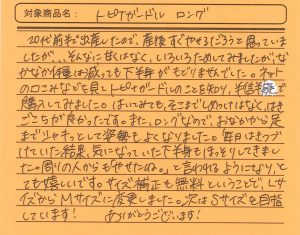 対象商品名： トピナガードル ロング
20代前半で出産したので、産後すぐやせるだろうと思っていました
が、そんなに甘くはなく、いろいろためしてみましたが、な
かなか体重は減っても下半身がもどりませんでした。ネット
の口コミなどを見とトピナガードルのことを知り、半信半疑で
購入してみました。はいてみても、そこまでしめつけはなくはき
ごこちが良かったです。また、ロングなので、おなかから足
まで シャキッとして姿勢もよくなりました。毎日はきつづけ
ていた結果、気になっていた下半身もほっそりしてきまし
た。周りの人からも「やせたね。」と言われるようになり、とっ
ても嬉しいです。サイズ補正も無料ということで、Lサ
イズからMサイズに変更しました。次はSサイズを目指
しています! ありがとうございます!